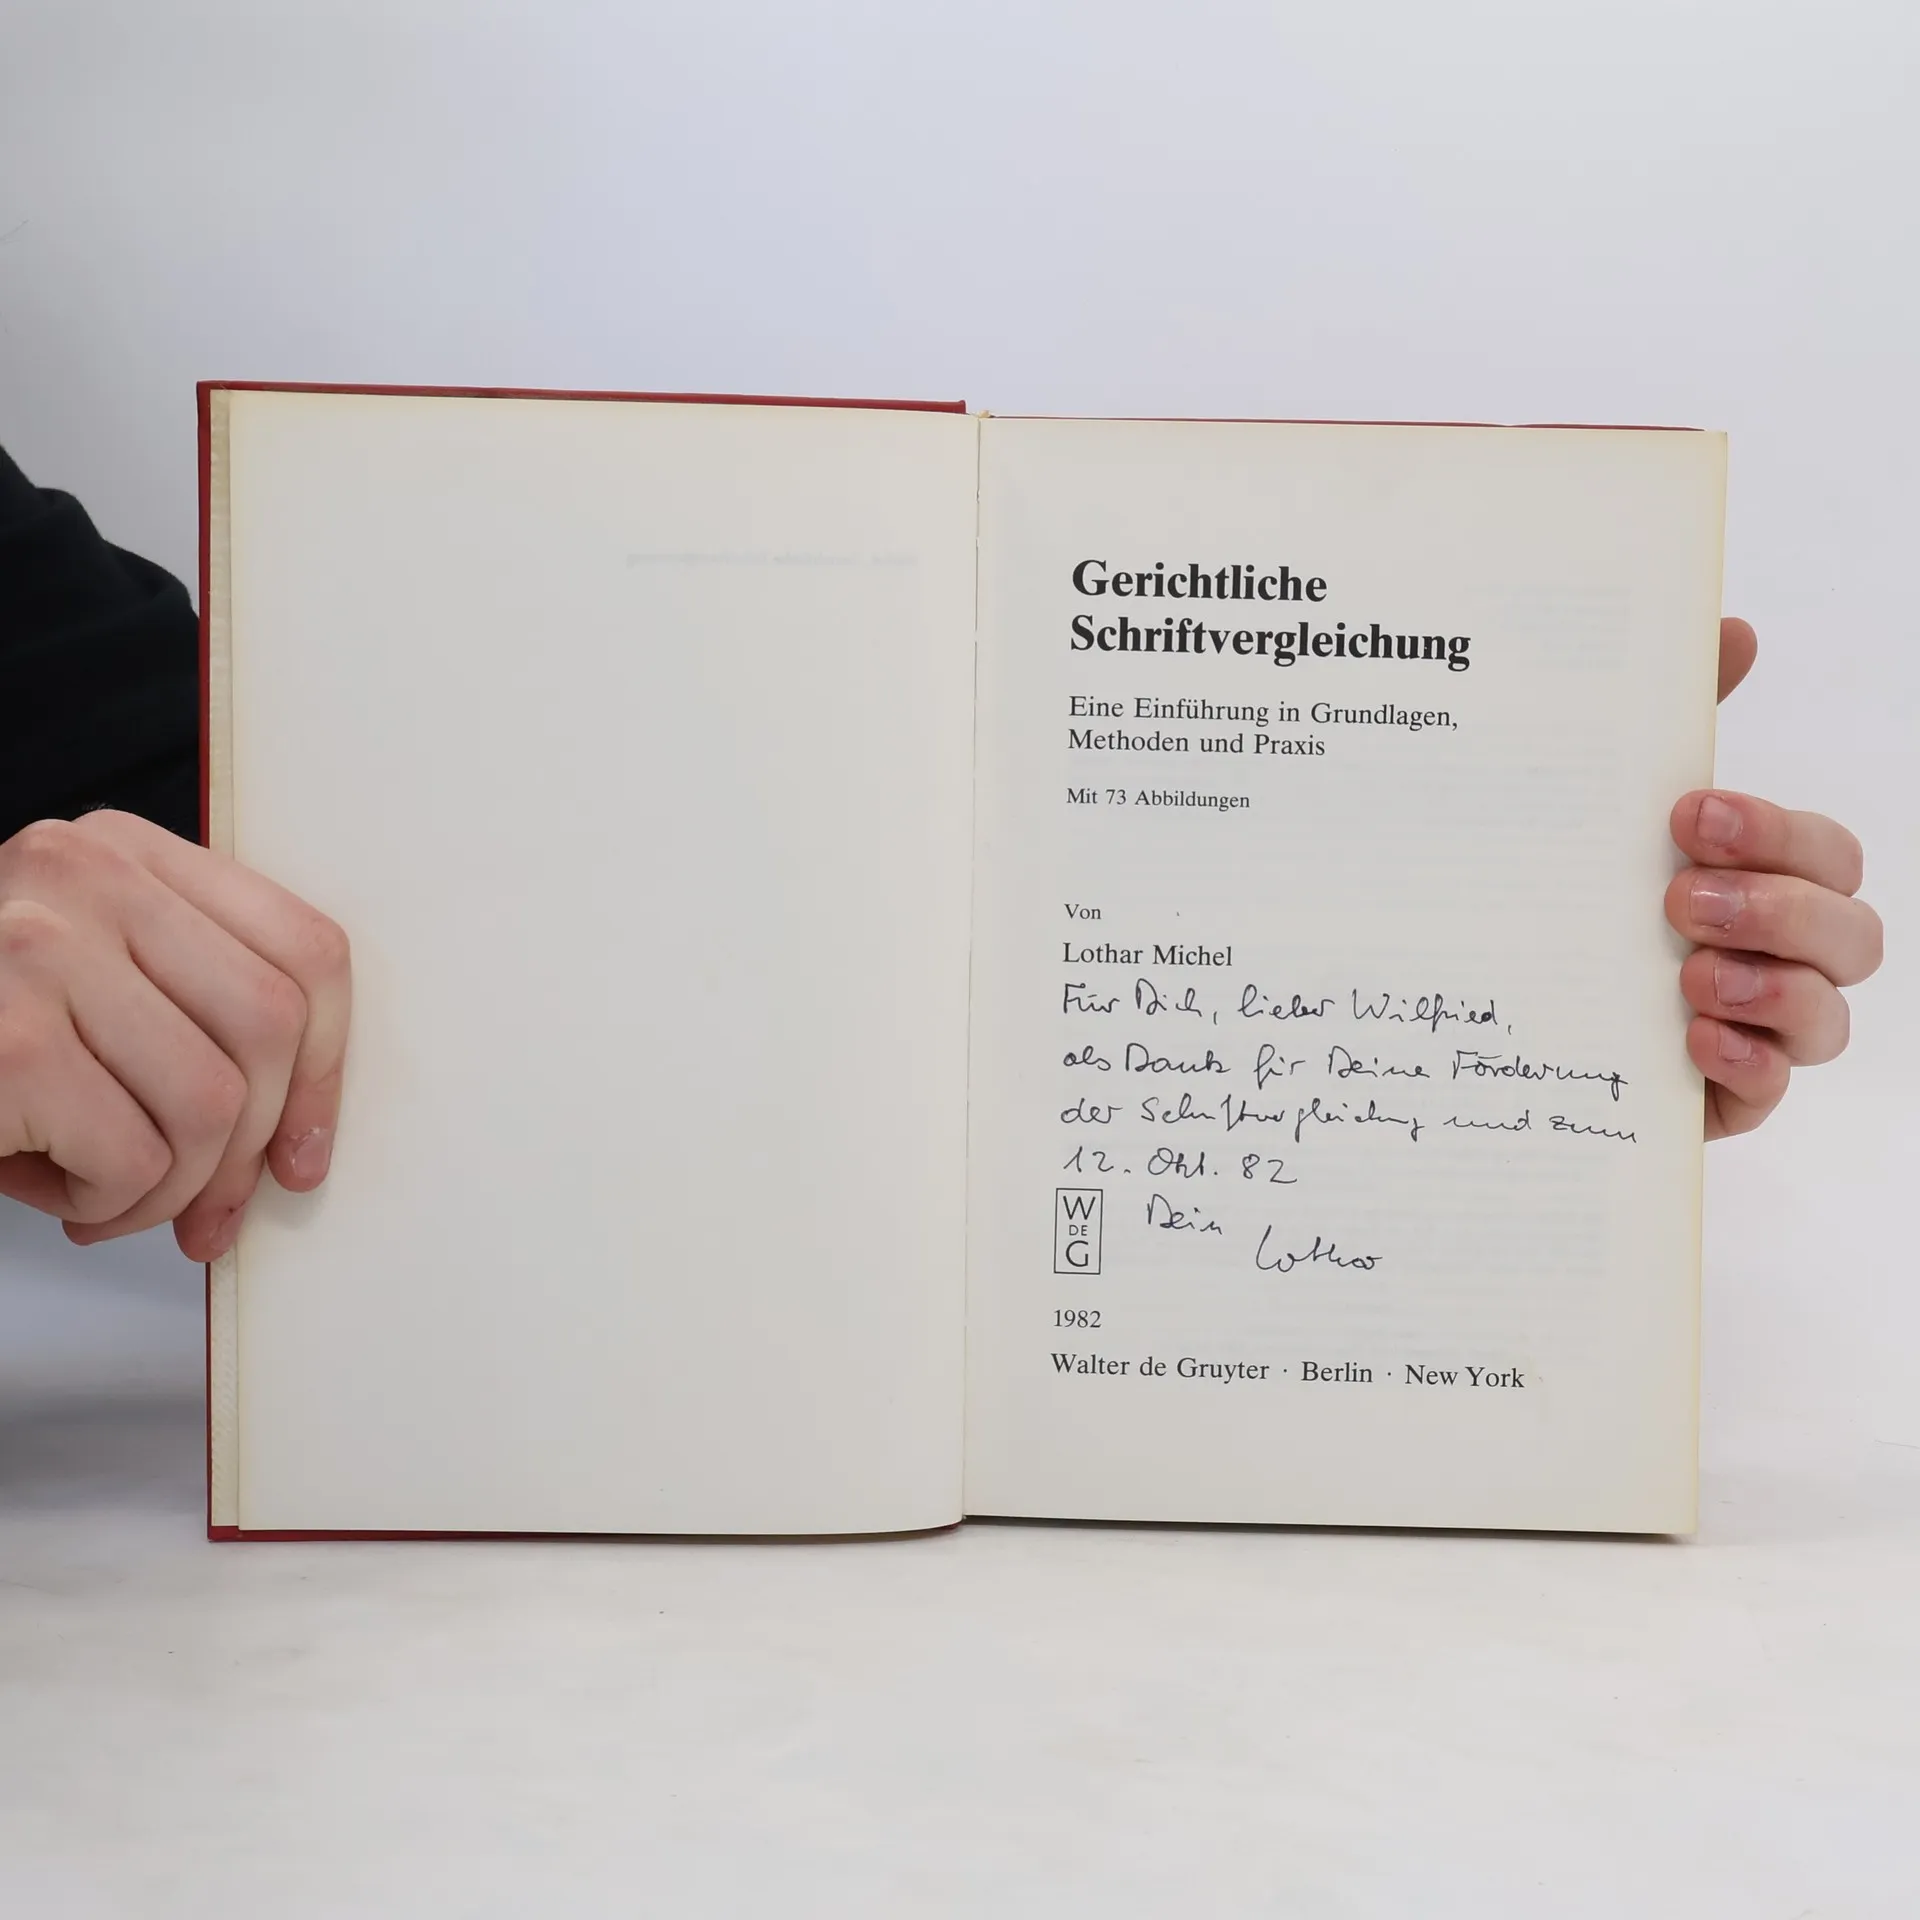 Gerichtliche
Schriftvergleichung
Eine Einführung in Grundlagen,
Methoden und Praxis
Mit 73 Abbildungen
Von
Lothar Michel
Für Dich, lieber Wilfried,
als Dank für Deine Förderung
der Schriftvergleichung und zum
12. Okt. 82
Dein
Lothar
W
DE
G
1982
Walter de Gruyter · Berlin · New York